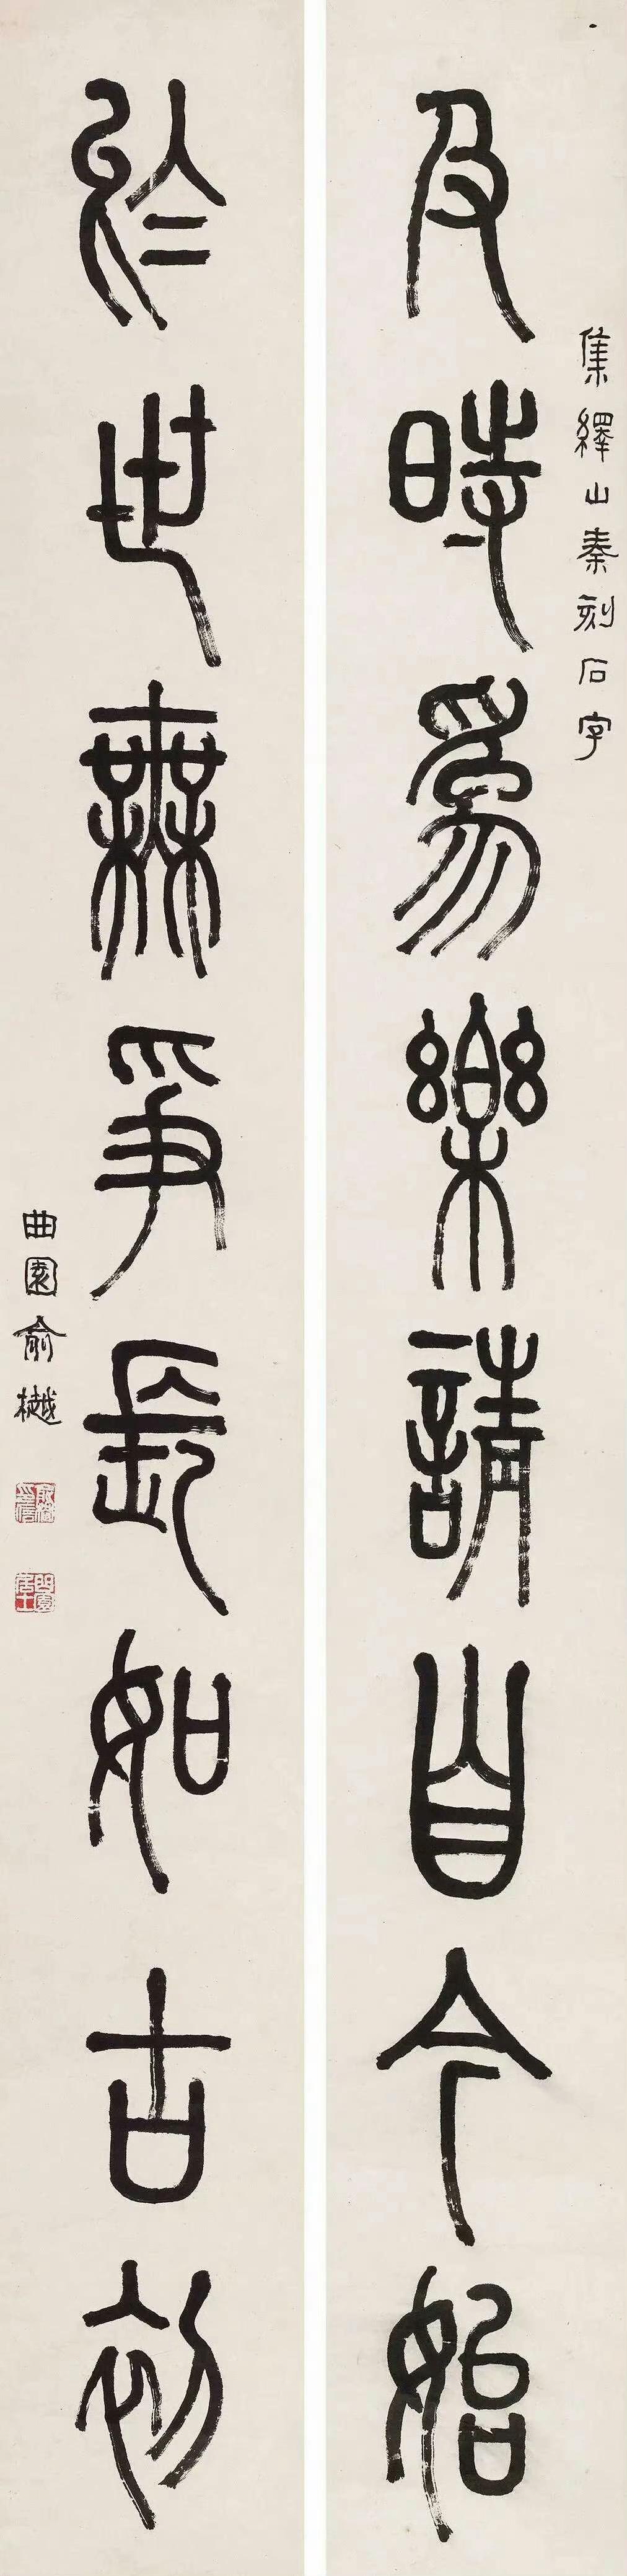 集繹山秦刻石字
及時爲樂請自今始
於世無爭長如古初
曲園俞樾